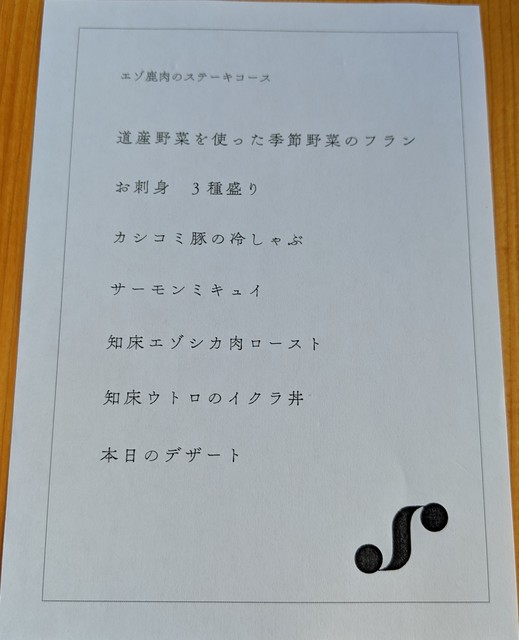 エゾ鹿肉のステーキコース
道産野菜を使った季節野菜のフラン
お刺身　3種盛り
カシコミ豚の冷しゃぶ
サーモンミキュイ
知床エゾシカ肉ロースト
知床ウトロのイクラ丼
本日のデザート